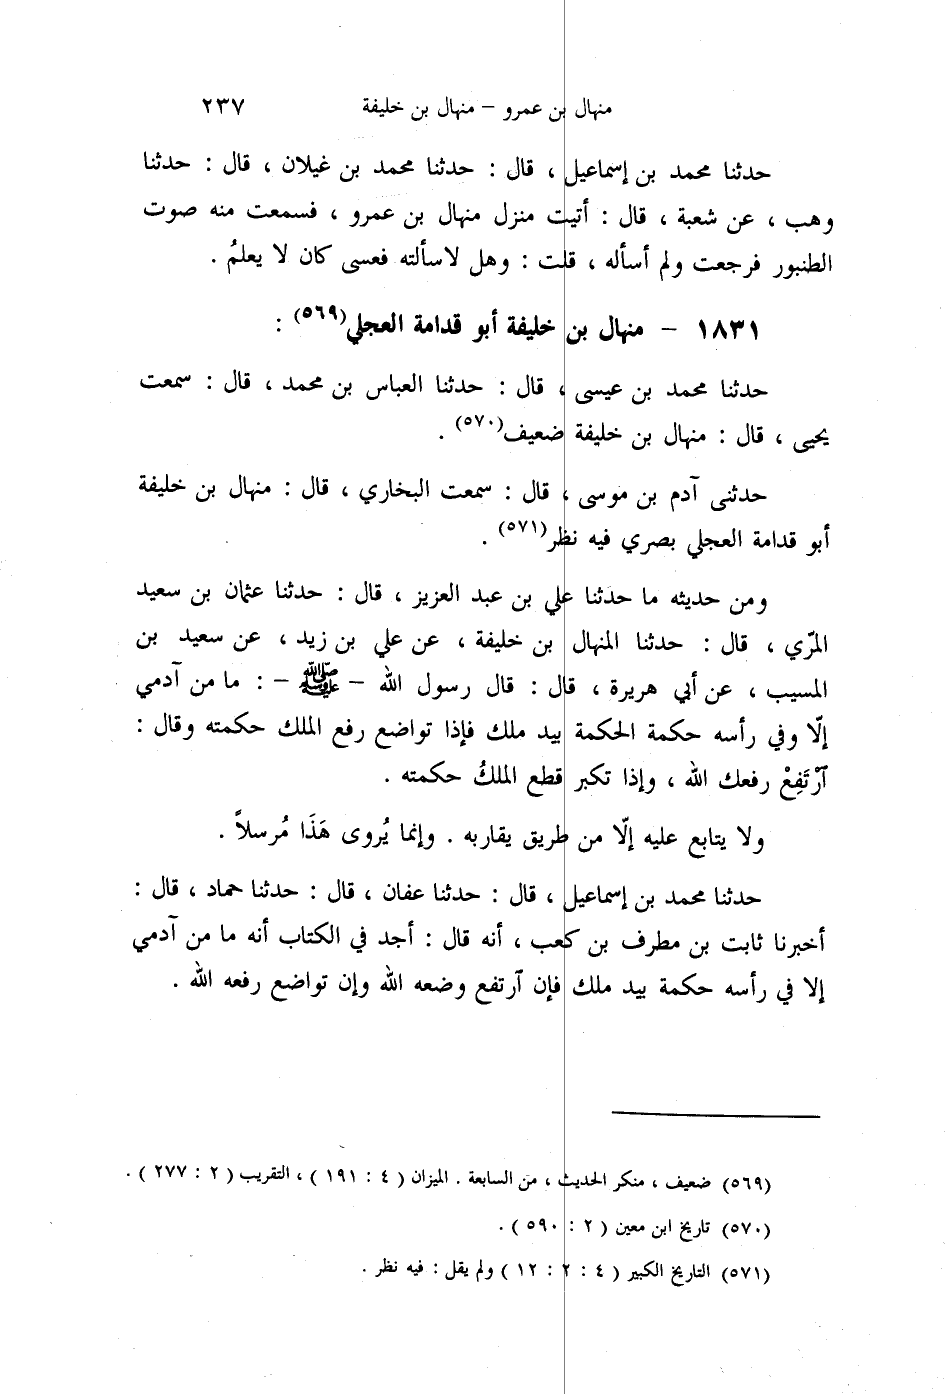 منهال بن عمرو – منهال بن خليفة ٢٣٧
حدثنا محمد بن إسماعيل ، قال : حدثنا محمد بن غيلان ، قال : حدثنا
وهب ، عن شعبة ، قال : أتيت منزل منهال بن عمرو ، فسمعت منه صوت
الطنبور فرجعت ولم أسأله ، قلت : وهل لاسألته فعسى كان لا يعلمُ .
١٨٣١ – منهال بن خليفة أبو قدامة العجلي(٥٦٩) :
حدثنا محمد بن عيسى ، قال : حدثنا العباس بن محمد ، قال : سمعت
يحيى ، قال : منهال بن خليفة ضعيف(٥٧٠) .
حدثنى آدم بن موسى ، قال : سمعت البخاري ، قال : منهال بن خليفة
أبو قدامة العجلي بصري فيه نظر(٥٧١) .
ومن حديثه ما حدثنا علي بن عبد العزيز ، قال : حدثنا عثمان بن سعيد
المرّي ، قال : حدثنا المنهال بن خليفة ، عن علي بن زيد ، عن سعيد بن
المسيب ، عن أبي هريرة ، قال : قال رسول الله – ﷺ – : ما من آدمي
إلّا وفي رأسه حكمة الحكمة بيد ملك فإذا تواضع رفع الملك حكمته وقال :
آرْتَفِعْ رفعك الله ، وإذا تكبر قطع الملكُ حكمته .
ولا يتابع عليه إلّا من طريق يقاربه . وإنما يُروى هَذَا مُرسلاً .
حدثنا محمد بن إسماعيل ، قال : حدثنا عفان ، قال : حدثنا حماد ، قال :
أخبرنا ثابت بن مطرف بن كعب ، أنه قال : أجد في الكتاب أنه ما من آدمي
إلا في رأسه حكمة بيد ملك فإن آرتفع وضعه الله وإن تواضع رفعه الله .
(٥٦٩) ضعيف ، منكر الحديث ، من السابعة . الميزان ( ٤ : ١٩١ ) ، التقريب ( ٢ : ٢٧٧ ) .
(٥٧٠) تاريخ ابن معين ( ٢ : ٥٩٠ ) .
(٥٧١) التاريخ الكبير ( ٤ : ٢ : ١٢ ) ولم يقل : فيه نظر .